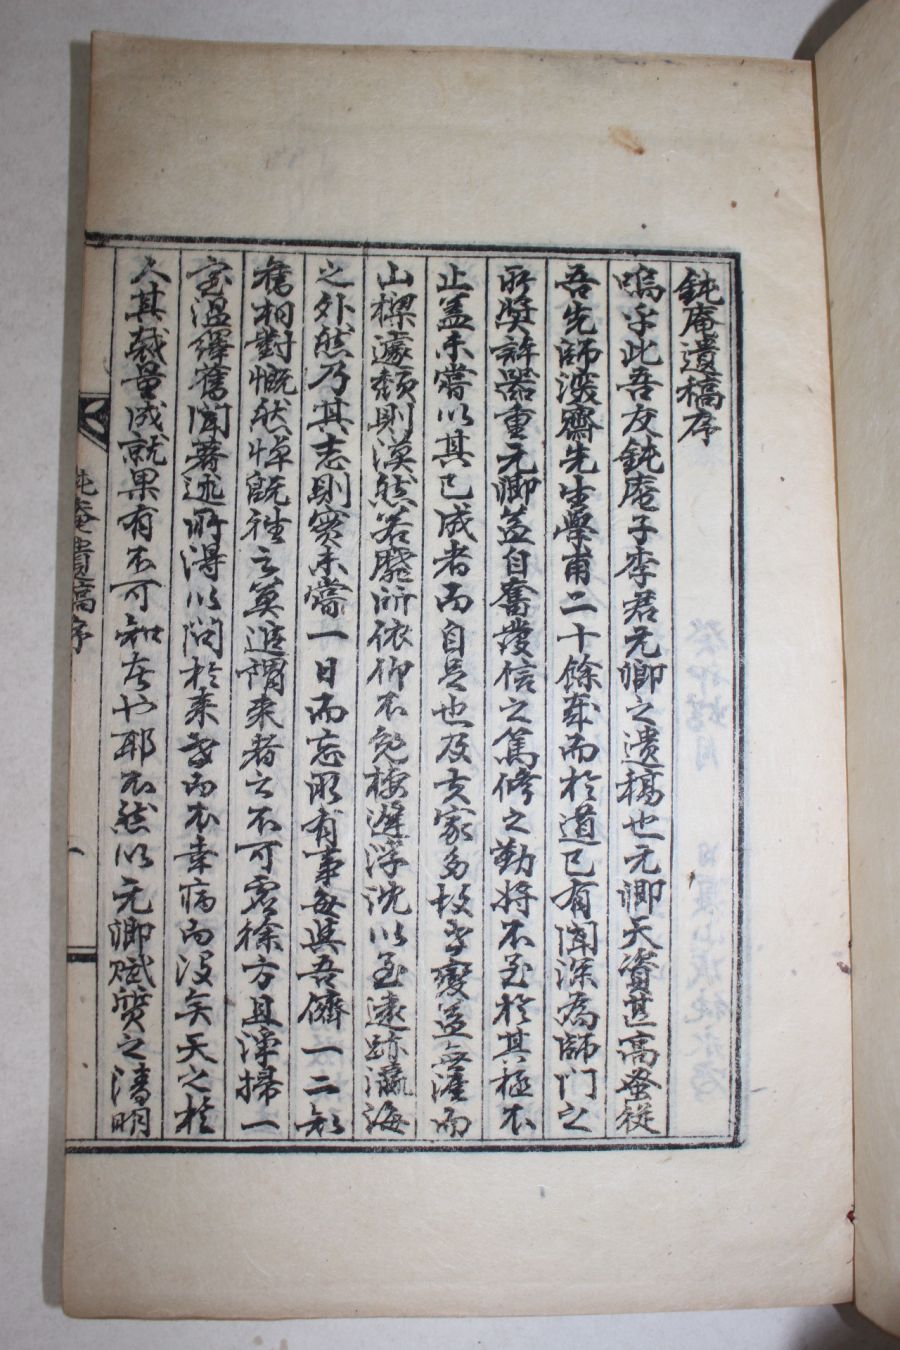 鈍庵遺稿序
嗚乎此吾友鈍庵子李君元卿之遺稿也元卿天資甚高蚤從
吾先師淡齋先生學甫二十餘歲而於道已有聞深爲師門之
所奬許器重元卿益自奮發信之篤修之勤將不至於其極不
止蓋未嘗以其已成者而自足也及夫家多故世變益無涯而
山樑遽頹則漠然若靡所依仰不免棲遲浮沈以至遠跡瀛海
之外然乃其志則實未嘗一日而忘所有事每與吾儕一二知
舊相對慨然悼旣往之莫追謂來者之不可虛徐方且淨掃一
室溫繹舊聞著述所得以問於來世而不幸病而沒矣天之於
人其裁量成就果有不可知者也耶不然以元卿賦質之淸明
鈍庵遺稿序
一